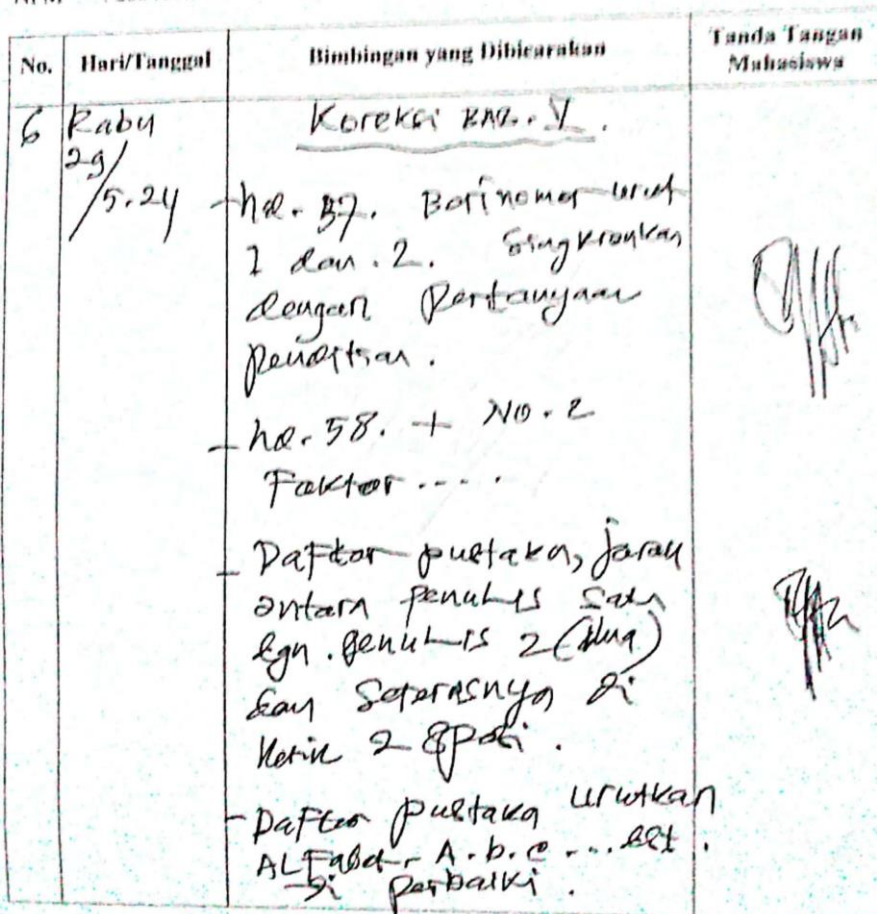 No. Hari/Tanggal Bimbingan yang Dibicarakan Tanda Tangan Mahasiswa
6 Rabu 29/5.24
Koreksi BAB. V.
- hal. 57. Beri nomor urut
1 dan. 2. Singkronkan
dengan Pertanyaan
Penelitian.
- hal. 58. + NO. 2
Faktor ....
- Daftar pustaka, jarak
antara penulis satu
dgn. penulis 2 (dua)
dan Seterusnya di
Ketik 2 Spasi.
- Daftar pustaka urutkan
ALFabet, A. b. c ... dst.
di perbaiki.